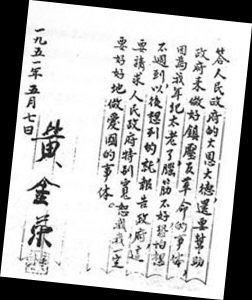 答人民政府的大恩大德，還要幫助
政府來做好鎮壓反革命的事体，
因為我年紀太老了腦筋不好恐怕想
不週到以後想到的，就報告政府還
要請求人民政府特別寬恕我我一定
要好好地做愛國的事体。
黃金荣
一九五一年五月七日